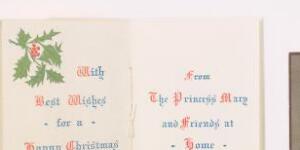 With
Best Wishes
- for a -
Happy Christmas
From
The Princess Mary
and Friends at
- Home -